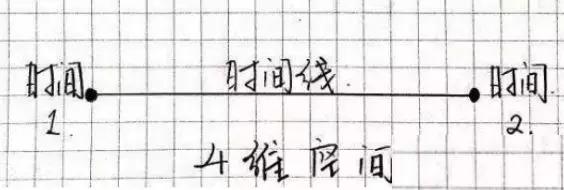 时间 时间线. 时间.
1. 2.
4维空间